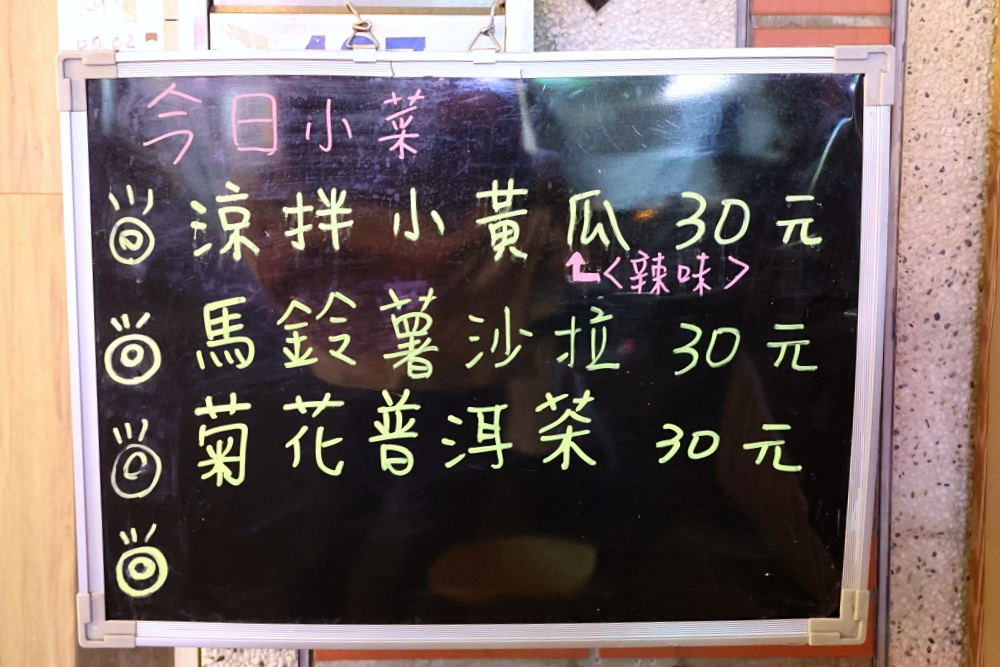 今日小菜
涼拌小黃瓜 30元
<辣味>
馬鈴薯沙拉 30元
菊花普洱茶 30元